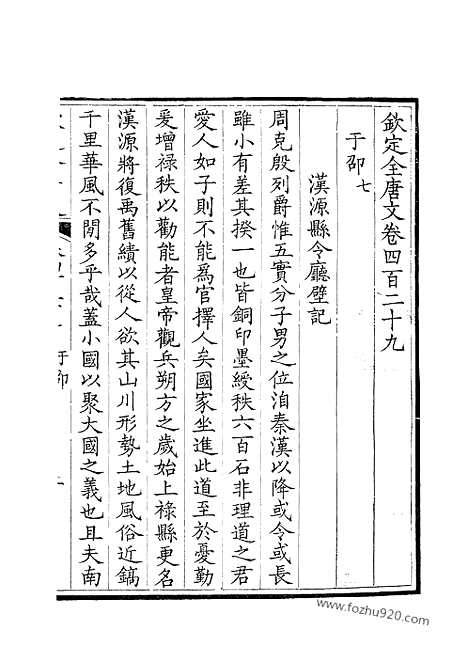 欽定全唐文卷四百二十九
于邵七
漢源縣令廳壁記
周克殷列爵惟五實分子男之位洎秦漢以降或令或長
雖小有差其揆一也皆銅印墨綬秩六百石非理道之君
愛人如子則不能為官擇人矣國家坐進此道至於憂勤
爰增祿秩以勸能者皇帝觀兵朔方之歲始上祿縣更名
漢源將復禹舊績以從人欲其山川形勢土地風俗近鎬
千里華風不閒多乎哉蓋小國以聚大國之義也且夫南
于邵
www.fozhu920.com